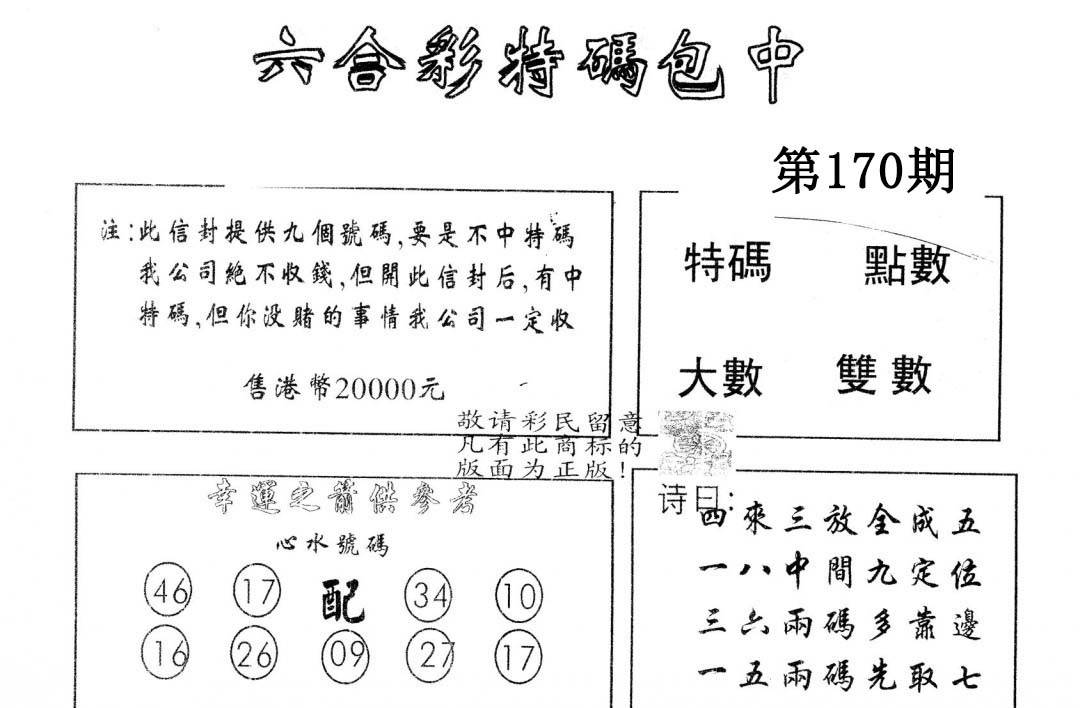 六合彩特碼包中
第170期
注:此信封提供九個號碼,要是不中特碼
我公司絶不收錢,但開此信封后,有中
特碼,但你没賭的事情我公司一定收
售港幣20000元
特碼 點數
大數 雙數
敬请彩民留意
凡有此商标的
版面为正版!
幸運之箭供參考
心水號碼
46 17 配 34 10
16 26 09 27 17
诗曰:
四來三放全成五
一八中間九定位
三六兩碼多靠邊
一五兩碼先取七